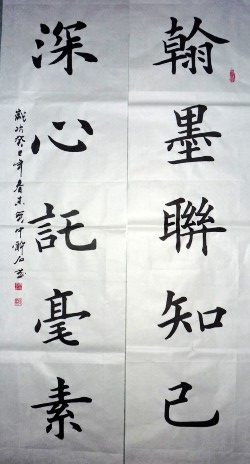 翰墨聯知己
深心託毫素
歲次癸巳年春末